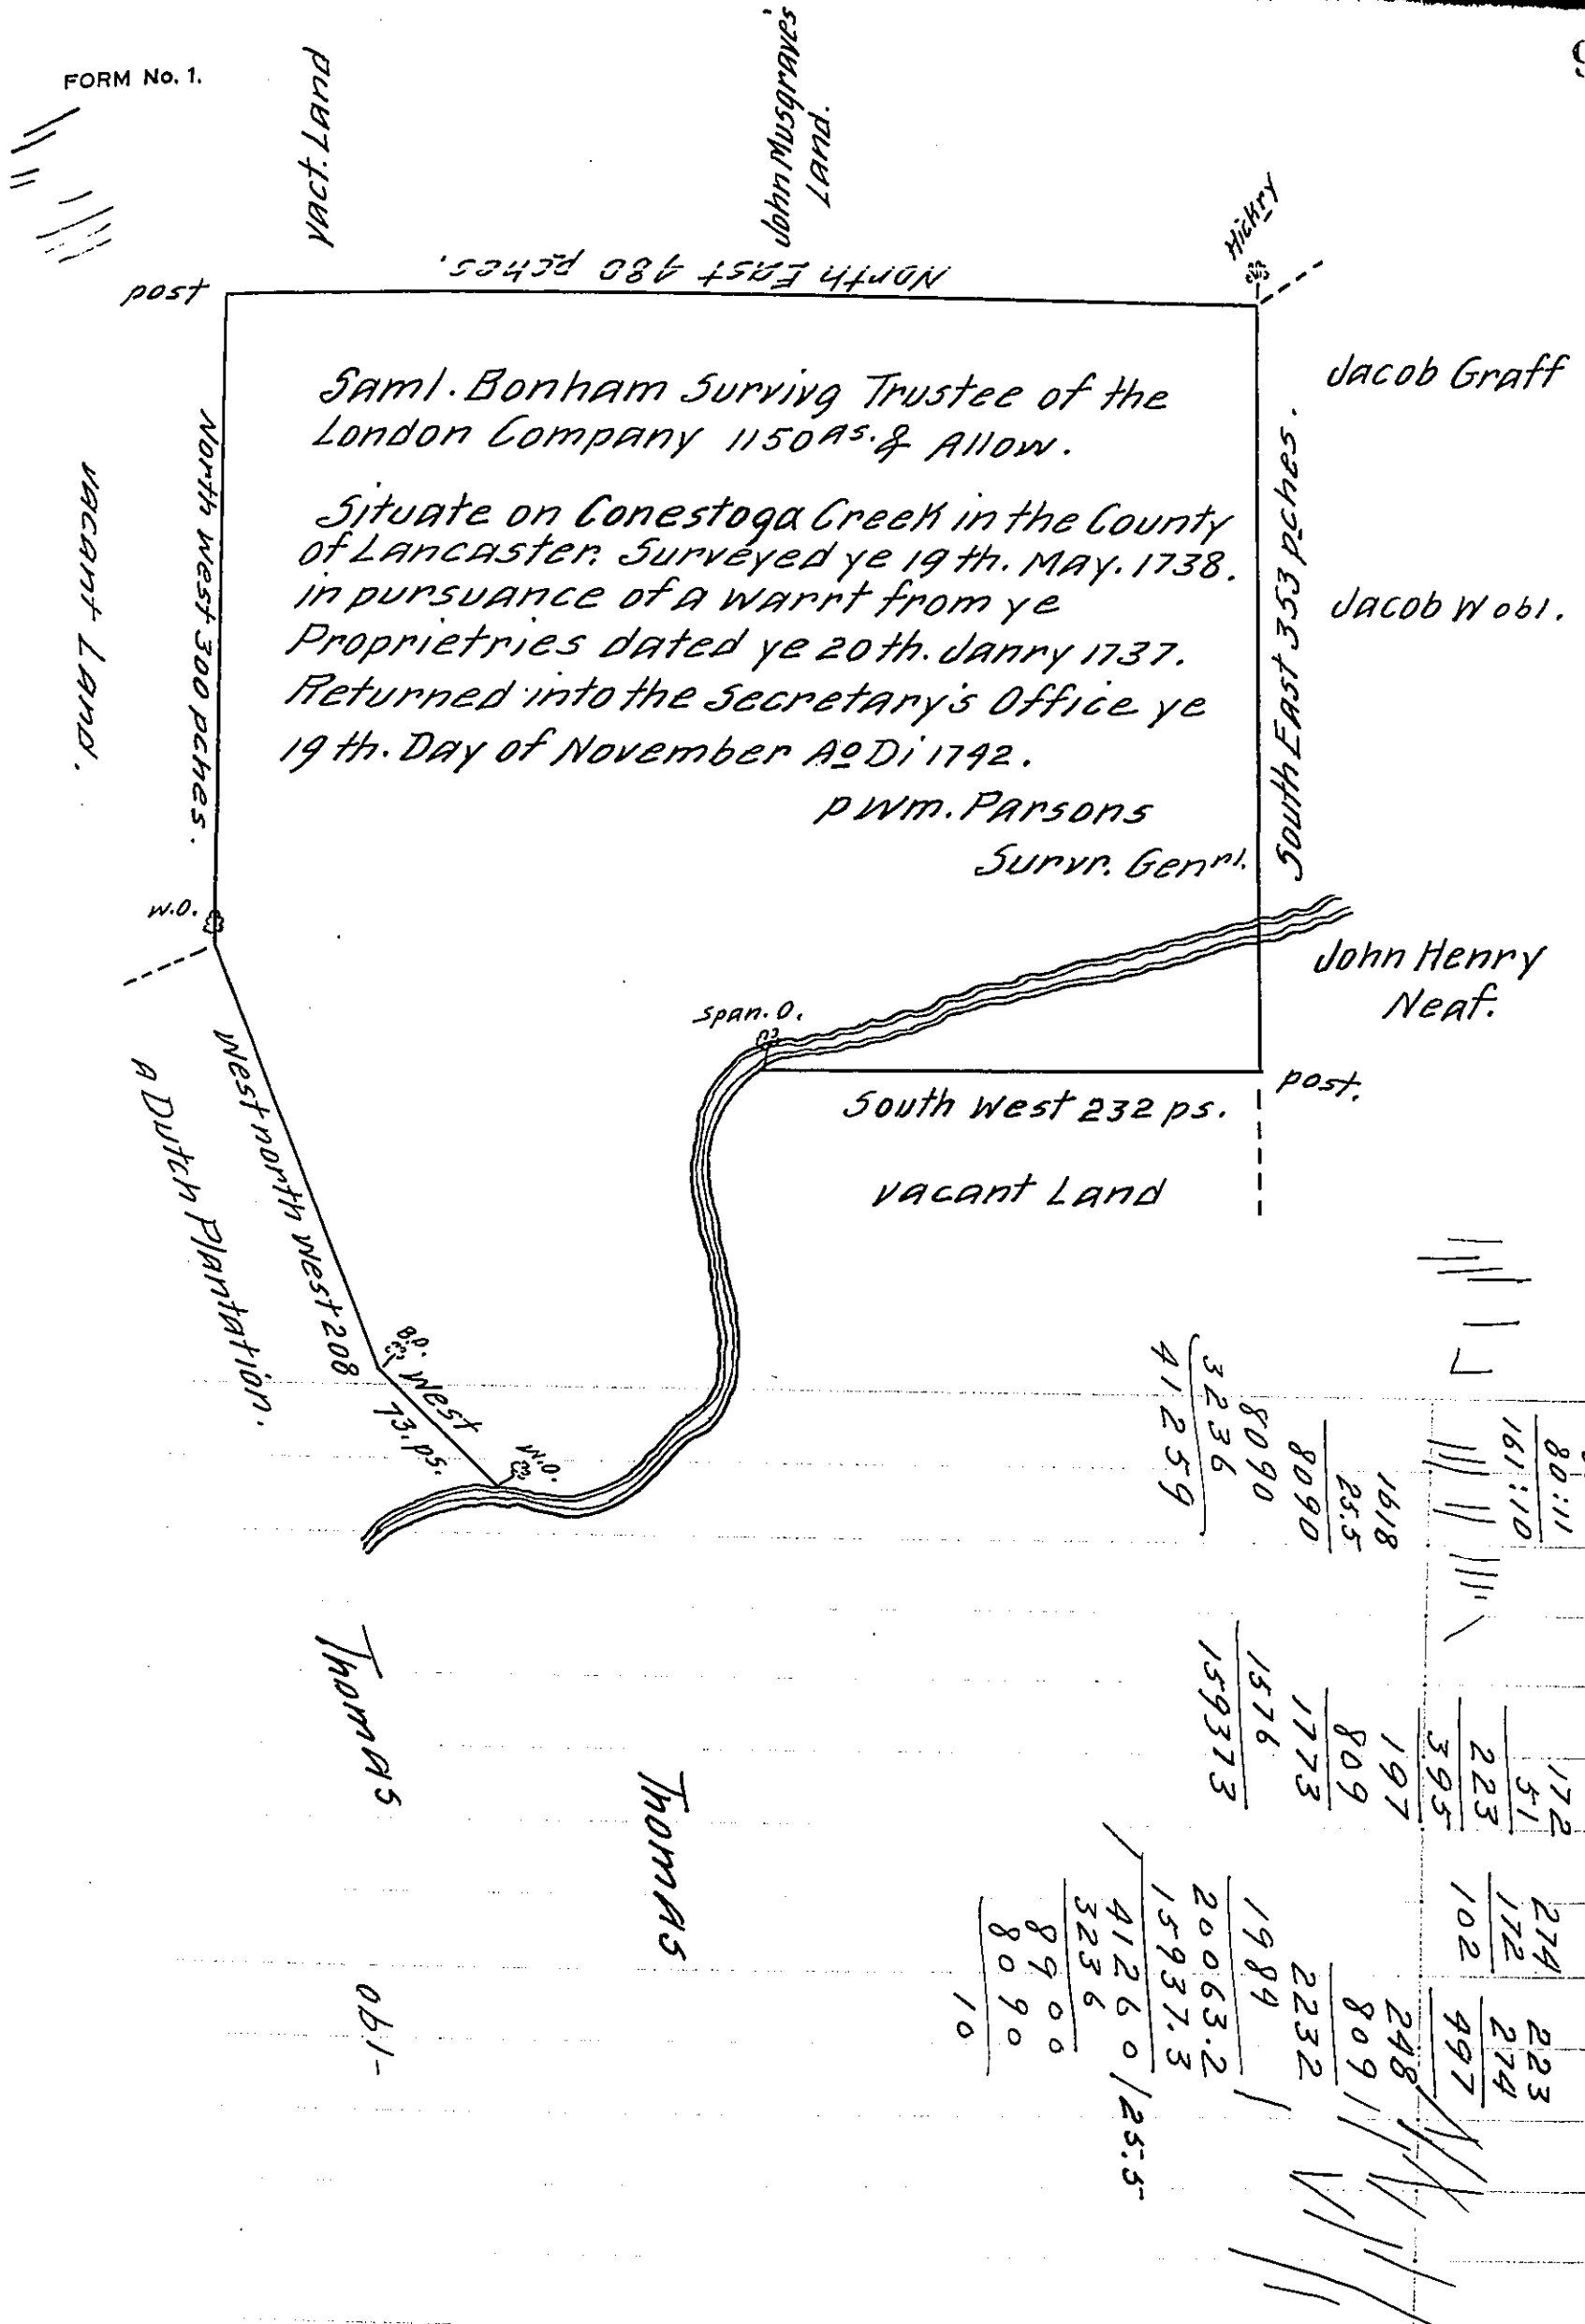 FORM No. 1.
vact. Land
John Musgraves
Land.
Hickry
North East 480 pches.
post
Saml. Bonham Survivg Trustee of the
London Company 1150 As. & Allow.
Situate on Conestoga Creek in the County
of Lancaster. Surveyed ye 19th. May. 1738.
in pursuance of a Warrt from ye
Proprietries dated ye 20th. Janry 1737.
Returned into the Secretary's Office ye
19th. Day of November Ao Di 1742.
p Wm. Parsons
Survr. Genrl.
North West 300 pches.
vacant Land.
South East 353 pches.
Jacob Graff
Jacob Wobl.
John Henry
Neaf.
W.O.
Span. O.
post.
South West 232 ps.
vacant Land
West north West 208
A Dutch Plantation.
B.O.
West
73. ps.
W.O.
80:11
161:10
1618
25.5
8090
8090
3236
41259
172
51
223
395
197
809
1773
1576
159373
274
172
102
223
274
497
248
809
2232
1984
20063.2
15937.3
41260/25.5
3236
8900
8090
10
Thomas
Thomas
obl-